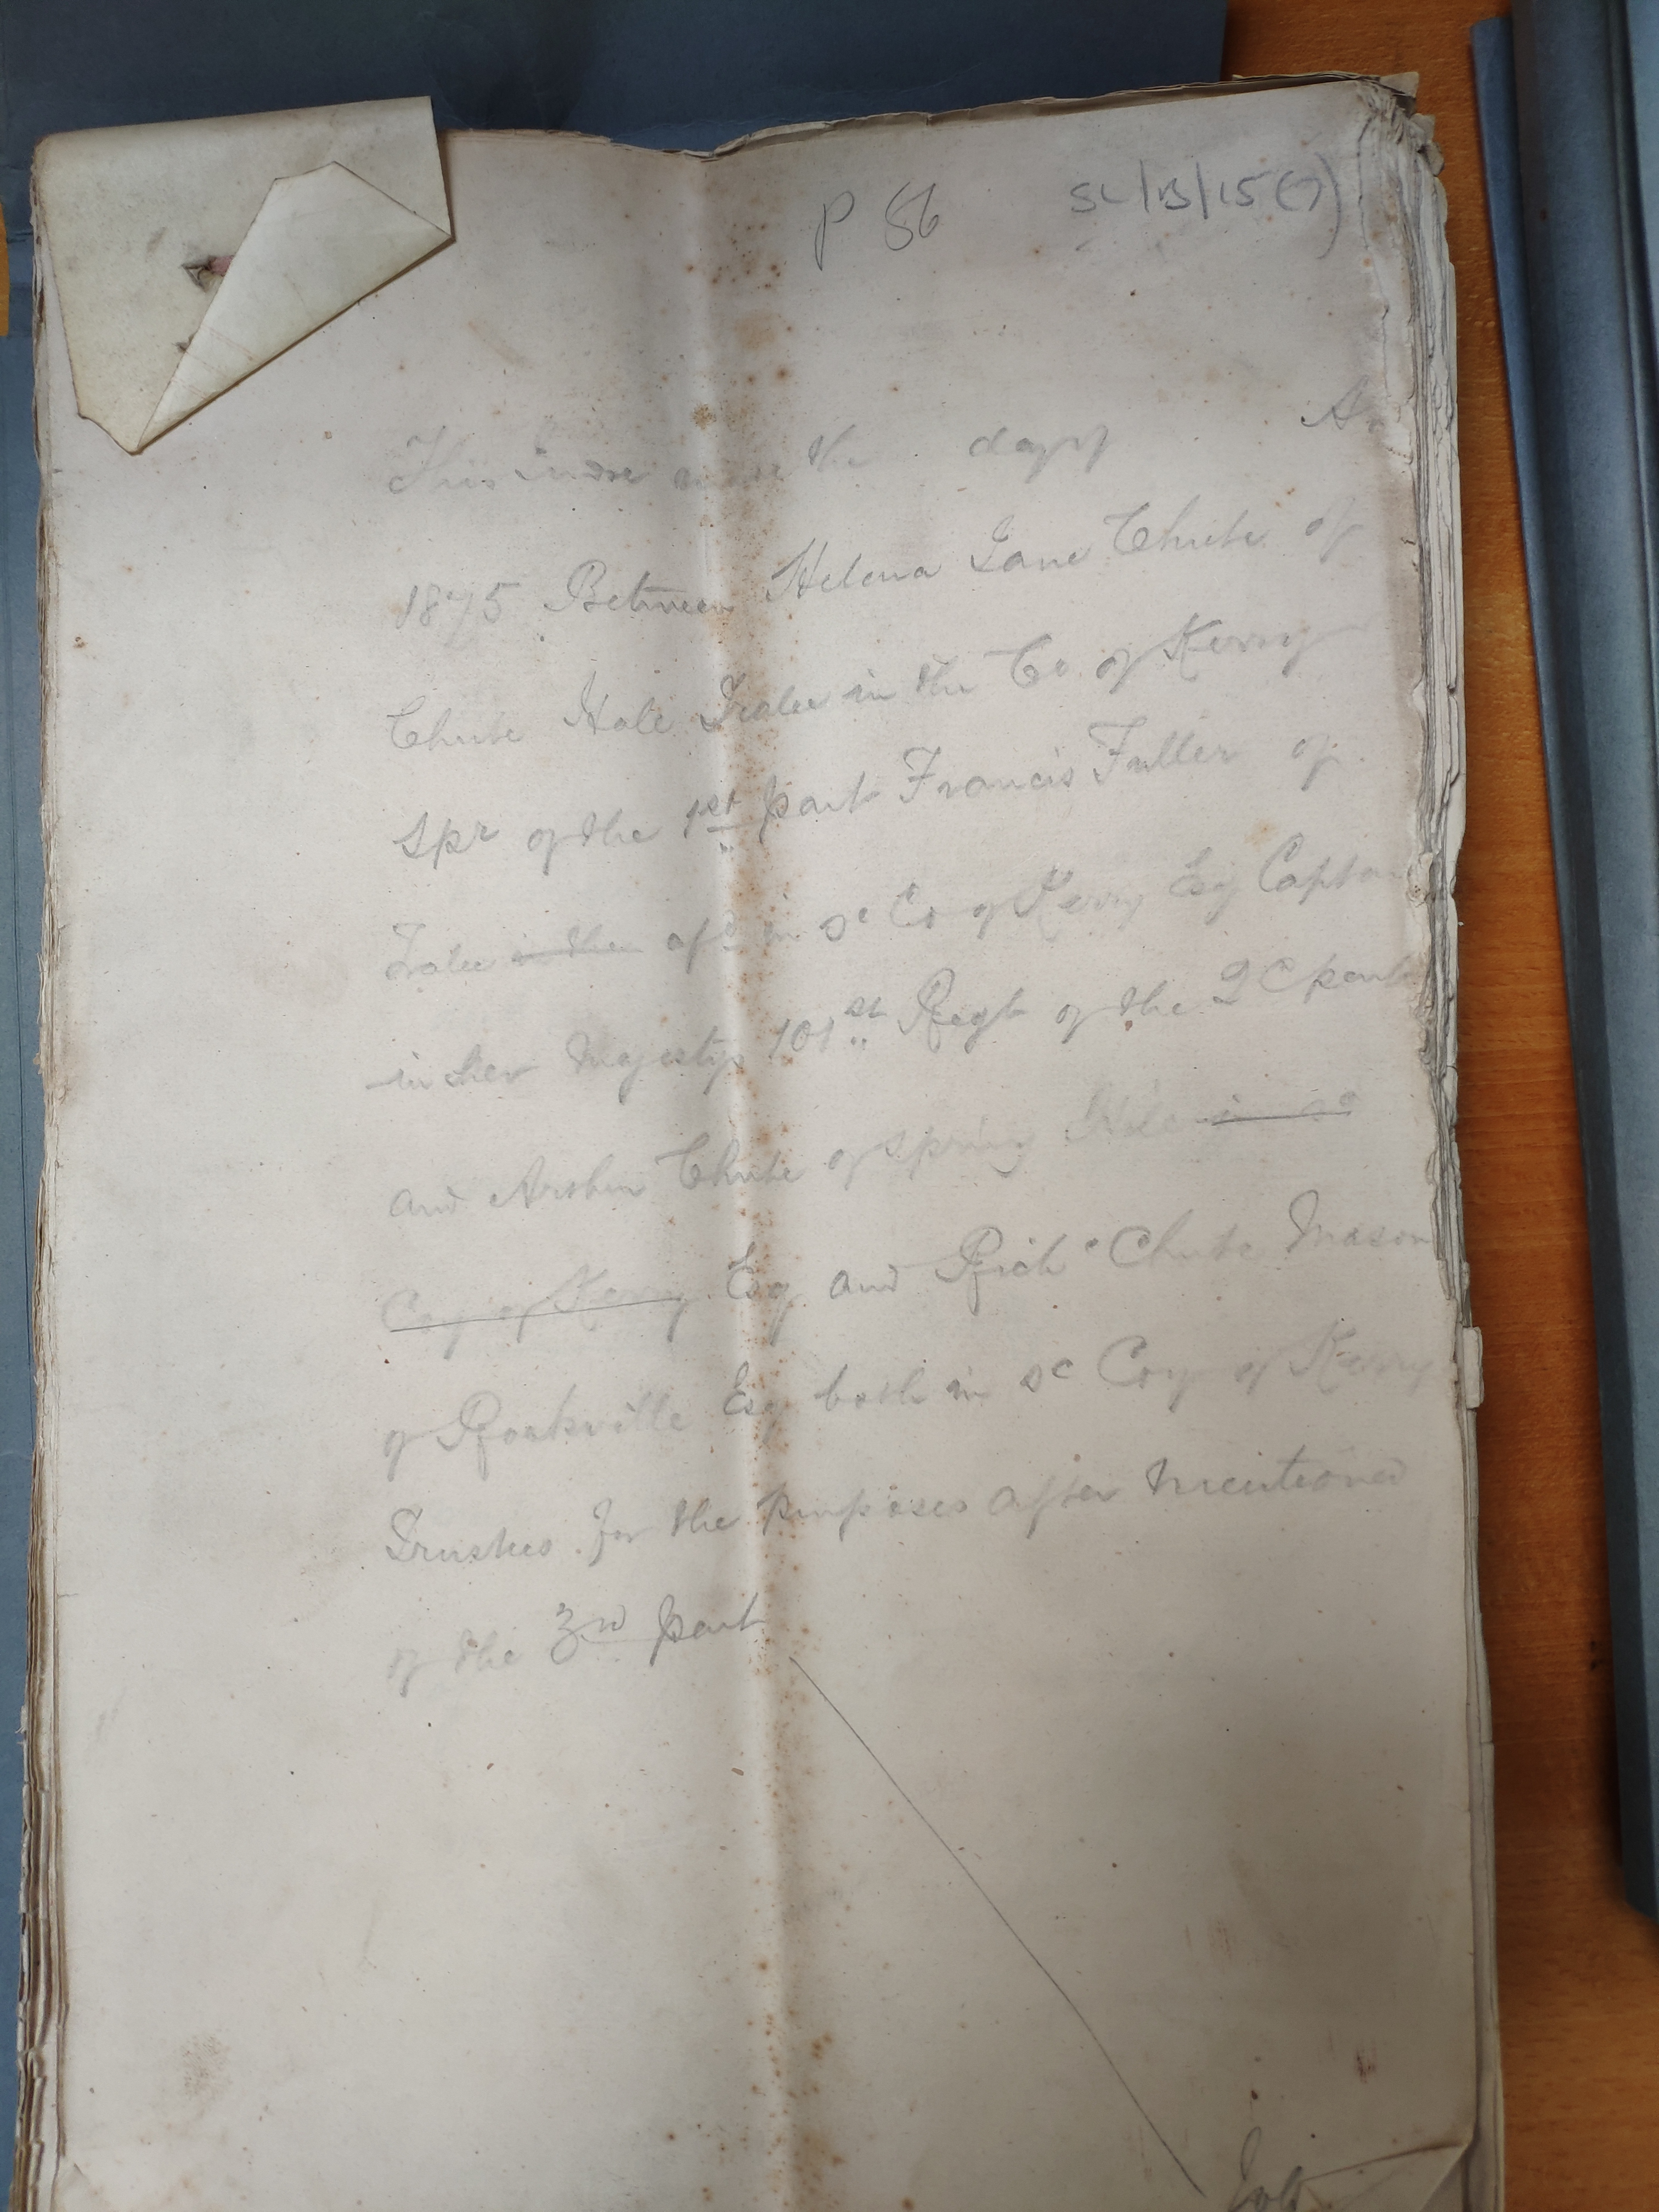 P 86 SL/B/15(7)
This indre made the day of
1875 Between Helena Jane Chute of
Chute Hall Tralee in the Co of Kerry
Spr of the 1st part Francis Fuller of
Tralee in the afd in sd Co of Kerry Esq Captain
in her Majestys 101st Regt of the 2d part
and Arthur Chute of Spring Hill in sd
Coy of Kerry Esq and Richd Chute Mason
of Rockville Esq both in sd Coy of Kerry
Trustees for the purposes after mentioned
of the 3rd part